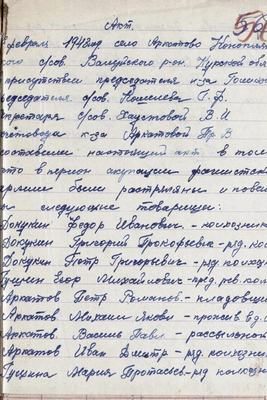 Акт.
февраль 1948 год село Аркатово Конопля
кого с/сов. Валуйского р-он. Курской обл
присутствии председателя к-за
едседателя с/сов. Кошелева Г. Ф.
кретаря с/сов. Хаустовой В. И
к-за Аркатовой Пр. В
составили настоящий акт в том
что в период окупации фашистск
армие были растреляны и пове
следующие товарищи:
Докукин Федор Иванович - колхозник
Докукин Григорий Прокофьевич - ряд. кол
Докукин Петр Григорьевич - ряд колхоз
Гущин Егор Михайлович - пред. рев. ком
Аркатов Петр Романов. - кладовщи
Аркатов Михаил Яковл - прожив Ед.
Аркатов. Василь Павл - рассыльной
Аркатов Иван Дмитр - ряд. колхозн
Гущина Мария Протасьев - ряд колхозн